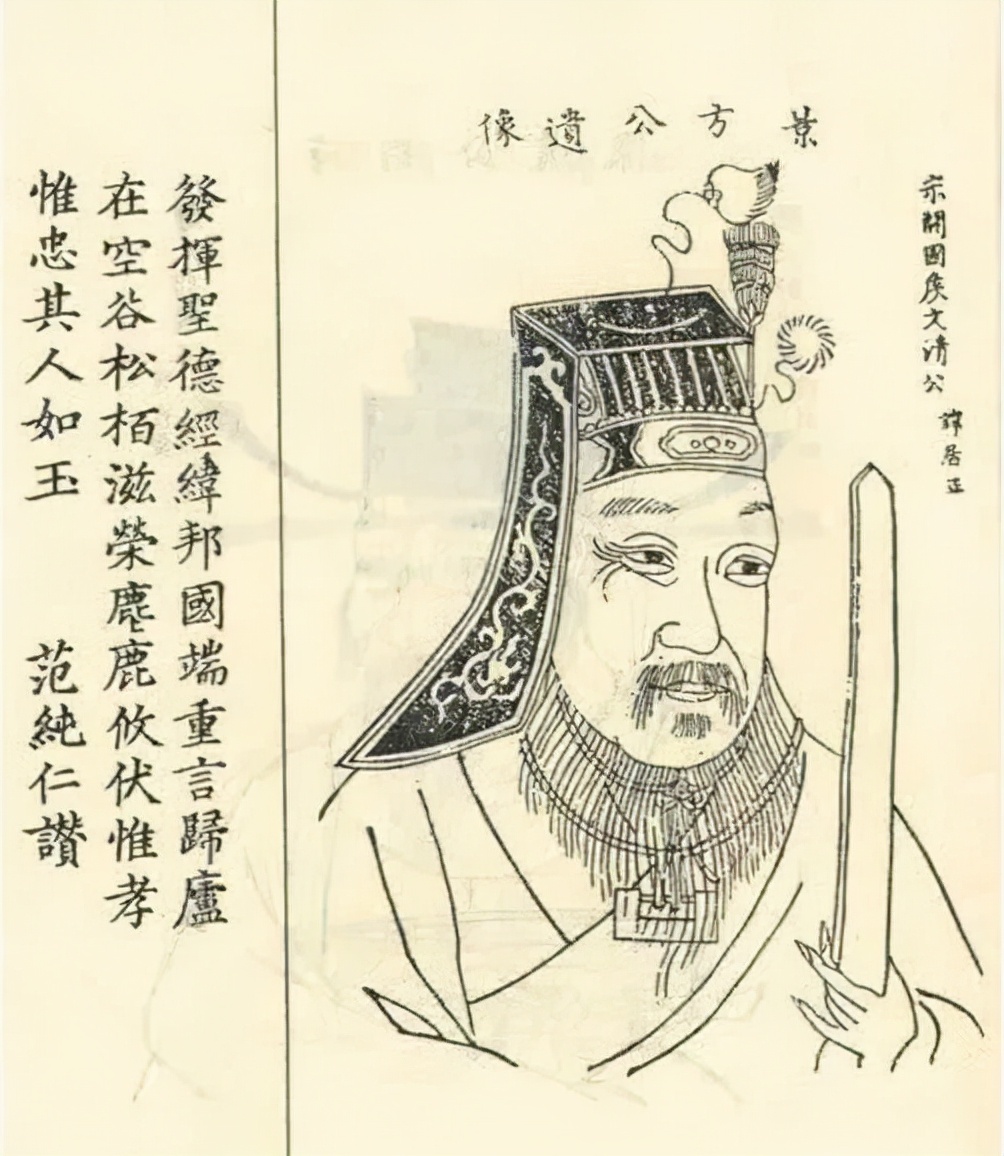 景方公遺像
宋開國侯文清公 諱居正
發揮聖德經緯邦國端重言歸廬
在空谷松栢滋榮麀鹿攸伏惟孝
惟忠其人如玉 范純仁讚